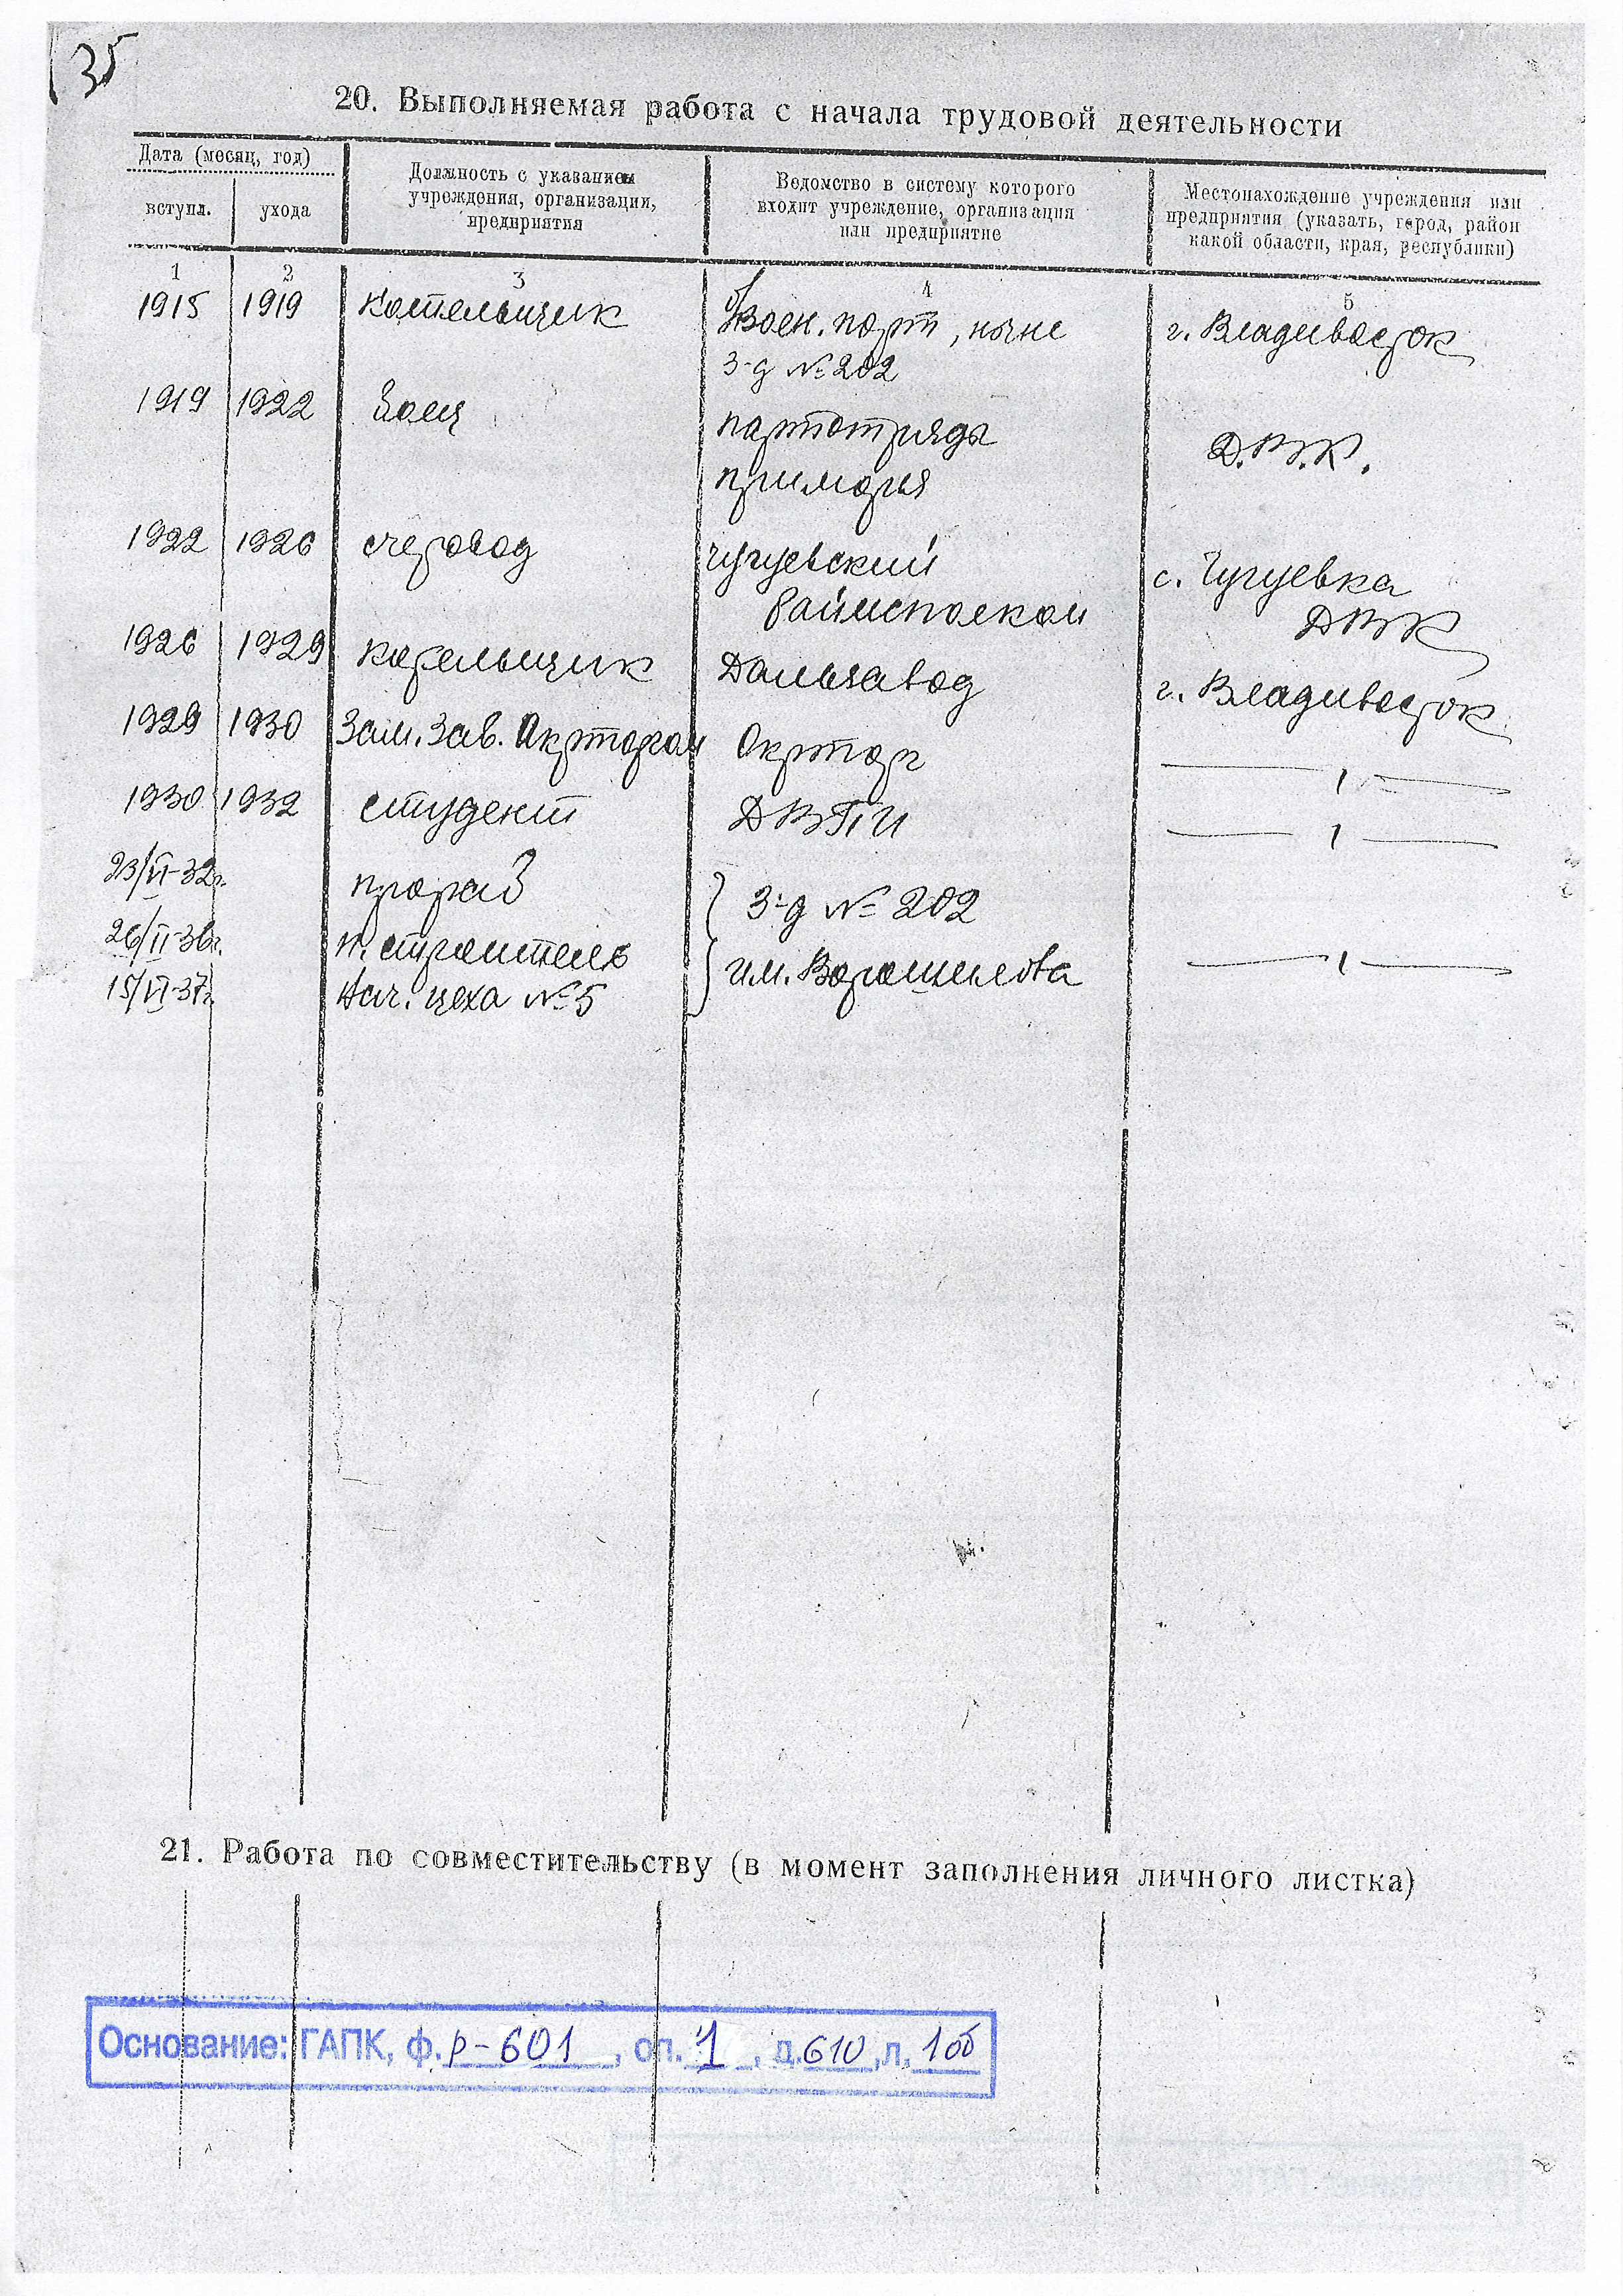 35
20. Выполняемая работа с начала трудовой деятельности
Дата (месяц, год)
вступл.
ухода
Должность с указанием
учреждения, организации,
предприятия
Ведомство в систему которого
входит учреждение, организация
или предприятие
Местонахождение учреждения или
предприятия (указать, город, район
какой области, края, республики)
1 2 3 4 5
1915 1919 Котельщик Воен. порт, ныне г. Владивосток
з-д № 202
1919 1922 Боец партотряды Д.В.К.
приморья
1922 1926 счетовод Чугуевский с. Чугуевка
райисполком ДВК
1926 1929 котельщик Дальзавод г. Владивосток
1929 1930 Зам. Зав. Окрторгом Окрторг — " —
1930 1932 студент ДВПИ — " —
23/VI-32г. прораб З-д № 202
26/II-36г. п. строитель им. Ворошилова — " —
15/VI-37г. Нач. цеха № 5
21. Работа по совместительству (в момент заполнения личного листка)
Основание: ГАПК, ф. Р-601, оп. 1, д. 610, л. 1об